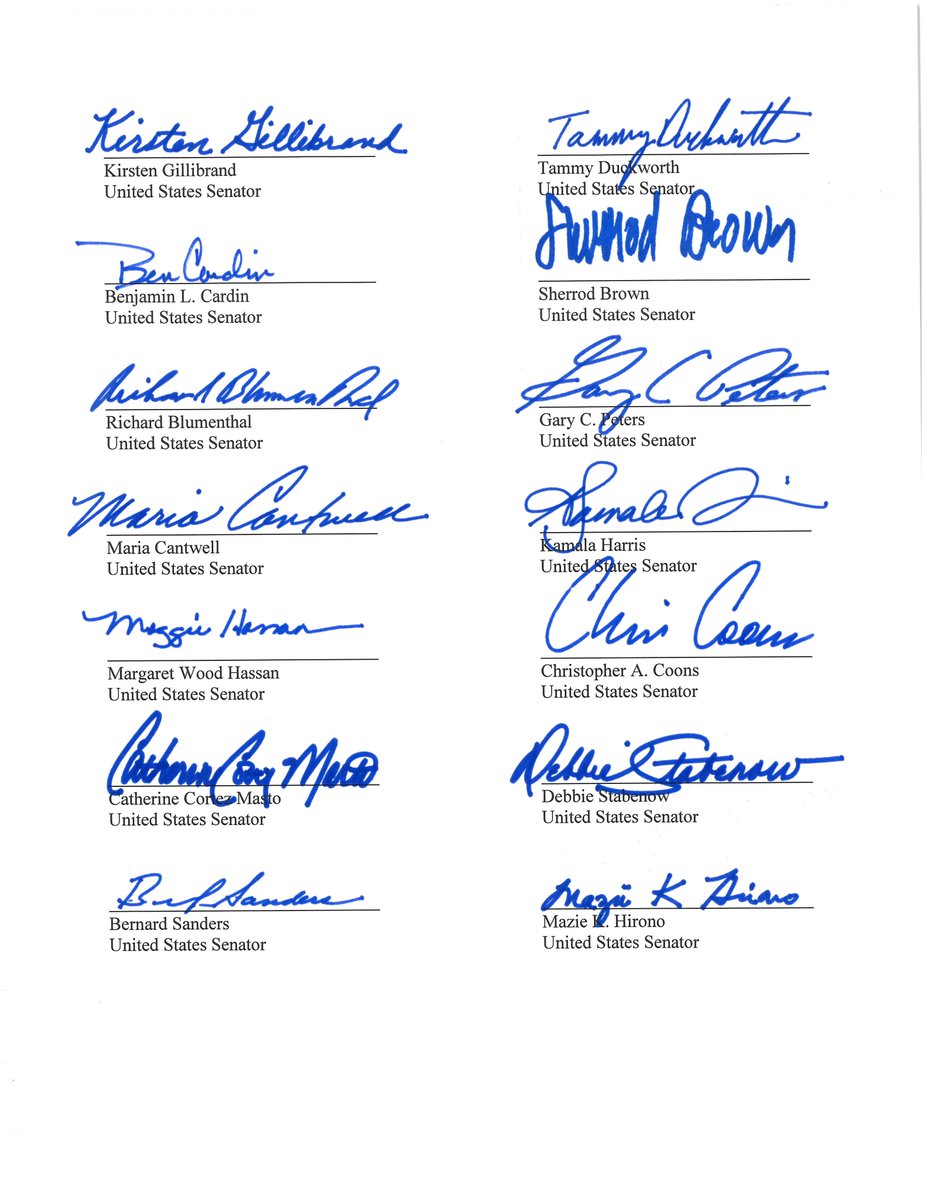 Kirsten Gillibrand
Kirsten Gillibrand
United States Senator
Tammy Duckworth
Tammy Duckworth
United States Senator
Ben Cardin
Benjamin L. Cardin
United States Senator
Sherrod Brown
Sherrod Brown
United States Senator
Richard Blumenthal
Richard Blumenthal
United States Senator
Gary C Peters
Gary C. Peters
United States Senator
Maria Cantwell
Maria Cantwell
United States Senator
Kamala
Kamala Harris
United States Senator
Maggie Hassan
Margaret Wood Hassan
United States Senator
Chris Coons
Christopher A. Coons
United States Senator
Catherine Cortez Masto
Catherine Cortez Masto
United States Senator
Debbie Stabenow
Debbie Stabenow
United States Senator
Sanders
Bernard Sanders
United States Senator
Mazie K Hirono
Mazie K. Hirono
United States Senator